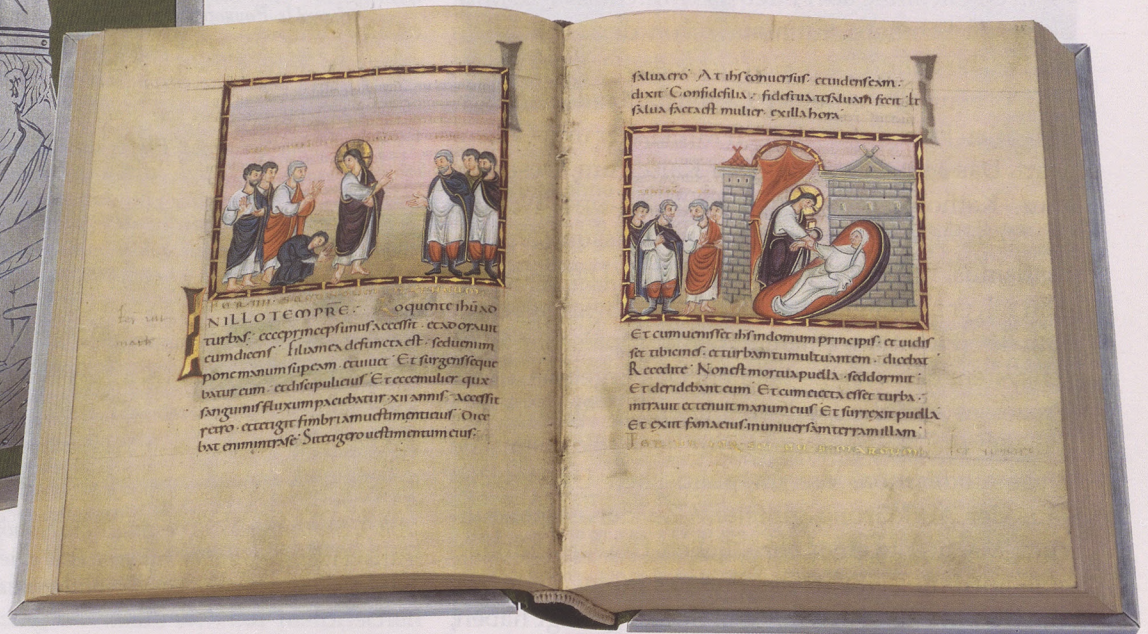 IN ILLO TEMPRE · Loquente ihū ad
turbas · ecce princeps unus accessit · et adoravit
eum dicens · Filia mea defuncta est · sed veni im
pone manum sup eam · et vivet · Et surgens seque
batur eum · et discipuli eius · Et ecce mulier quę
sanguinis fluxum paciebatur XII annis · accessit
retro · et tetigit fimbriam vestimenti eius · Dice
bat enim intra se · Si tetigero vestimentum eius ·
salva ero · At ihs conversus · et videns eam ·
dixit · Confide filia · fides tua te salvam fecit · Et
salva facta est mulier · ex illa hora ·
Et cum venisset ihs in domum principis · et vidis
set tibicines · et turbam tumultuantem · dicebat ·
Recedite · Non est mortua puella · sed dormit ·
Et deridebant eum · Et cum eiecta esset turba ·
intravit et tenuit manum eius · Et surrexit puella ·
Et exiit fama eius · in universam terram illam ·